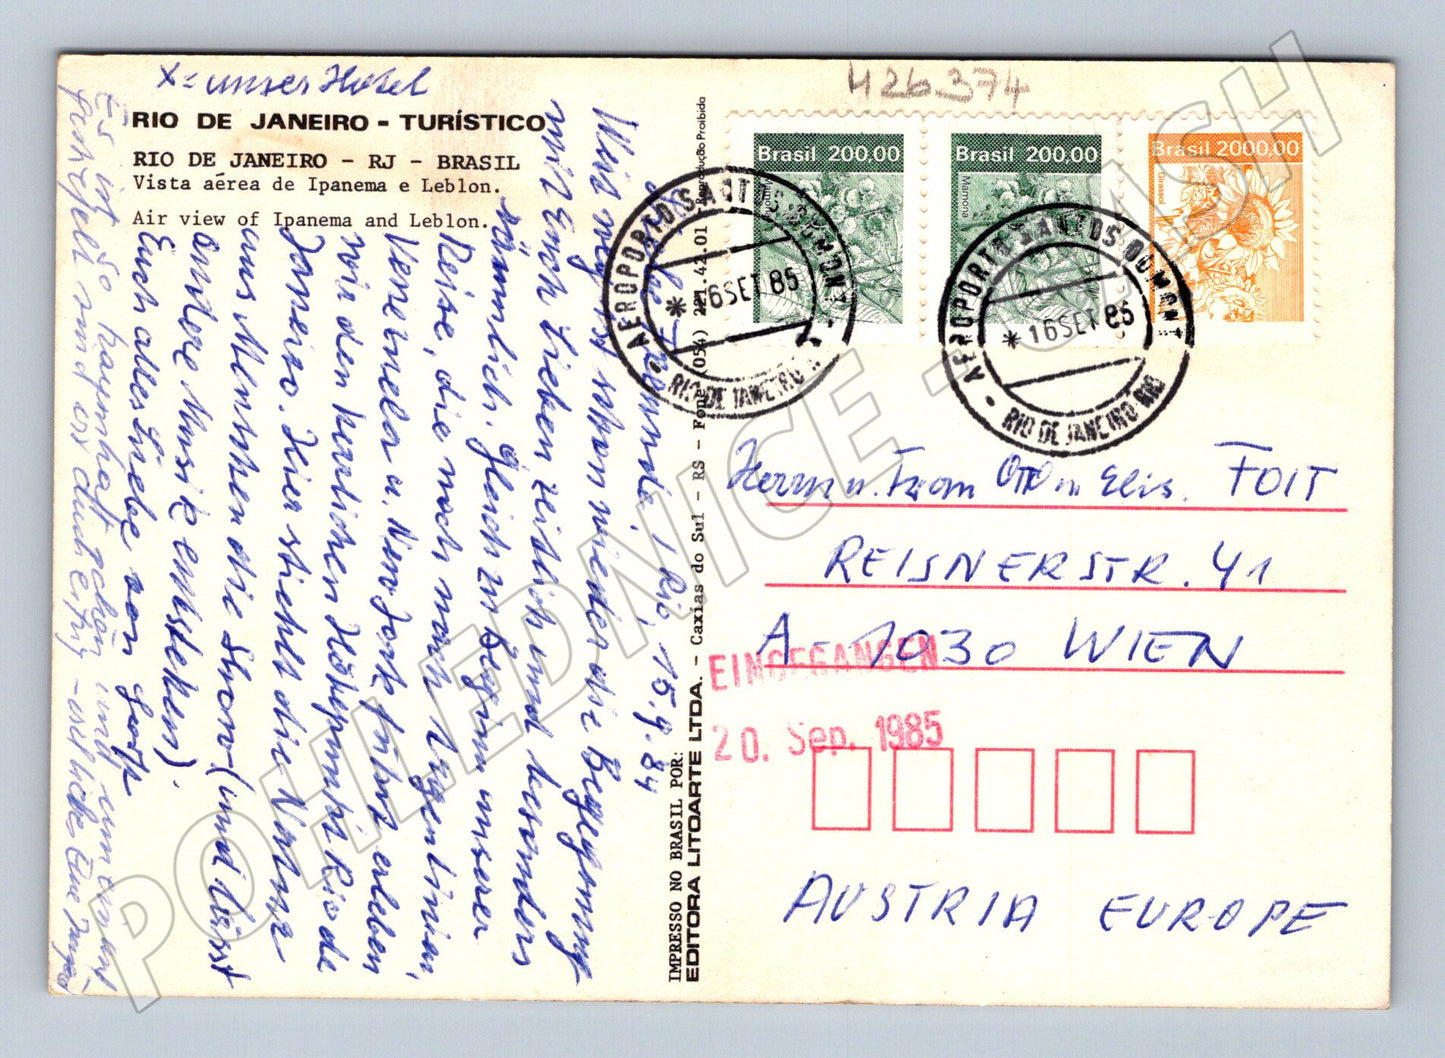 X = unser Hotel
RIO DE JANEIRO - TURÍSTICO
RIO DE JANEIRO - RJ - BRASIL
Vista aérea de Ipanema e Leblon.
Air view of Ipanema and Leblon.
Liebe Freunde, Rio, 15.9.84
Wie weg ist schon wieder die Begegnung
mit Euch Lieben zeitlich und besonders
räumlich. Gleich zu Beginn unserer
Reise, die nach nach Argentinien,
Venezuela u. New York führt erleben
wir den herrlichen Höhepunkt Rio de
Janeiro. Hier stiehlt die Natur
aus Menschen die Show (und lässt
andere Musik entstehen).
Euch alles Liebe von
Es ist so traumhaft schön und
sind
426374
Reprodução Proibida
IMPRESSO NO BRASIL POR:
EDITORA LITOARTE LTDA. - Caxias do Sul - RS - Fone (054) 221.4.01
Brasil 200,00
Mamona
Brasil 200,00
Mamona
Brasil 2000,00
Girassol
AEROPORTO SANTOS DUMONT
* 16 SET 85
RIO DE JANEIRO
AEROPORTO SANTOS DUMONT
* 16 SET 85
RIO DE JANEIRO
Herrn u. Frau Otto u. Elis. FOIT
REISNERSTR. 41
A-1030 WIEN
EINGEGANGEN
20. Sep. 1985
AUSTRIA EUROPE
POHLEDNICE - CASH